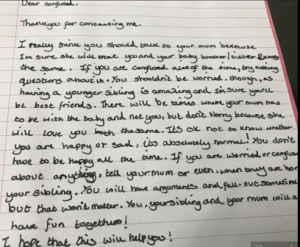 Dear confused,
Thankyou for contacting me.
I really think you should talk to your mum because
Im sure she will treat you and your baby brother/sister
the same. If you are confused alot of the time, try asking
questions about it. You shouldn't be worried, though, as
having a younger sibling is amazing and im sure you'll
be best friends. There will be times where your mum has
to be with the baby and not you, but don't worry because she
will love you both the same. It's ok not to know whether
you are happy or sad, its absolutely normal! You don't
have to be happy all the time. If you are worried or confused
about anything, tell your mum or even, when they are born
your sibling. You will have arguments and fall-out sometimes
but that won't matter. You, your sibling and your mum will
have fun together!
I hope that this will help you!